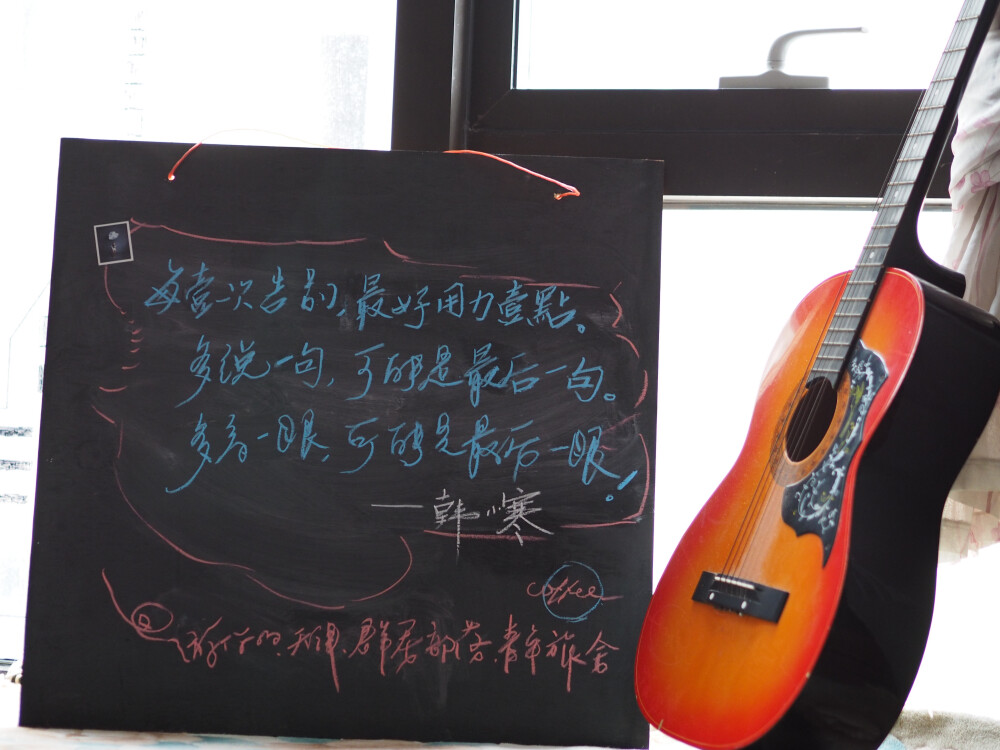 每壹次告别，最好用力壹點。
多说一句，可能是最后一句。
多看一眼，可能是最后一眼！
—韩小寒
coffee
天津.群居部落.青年旅舍